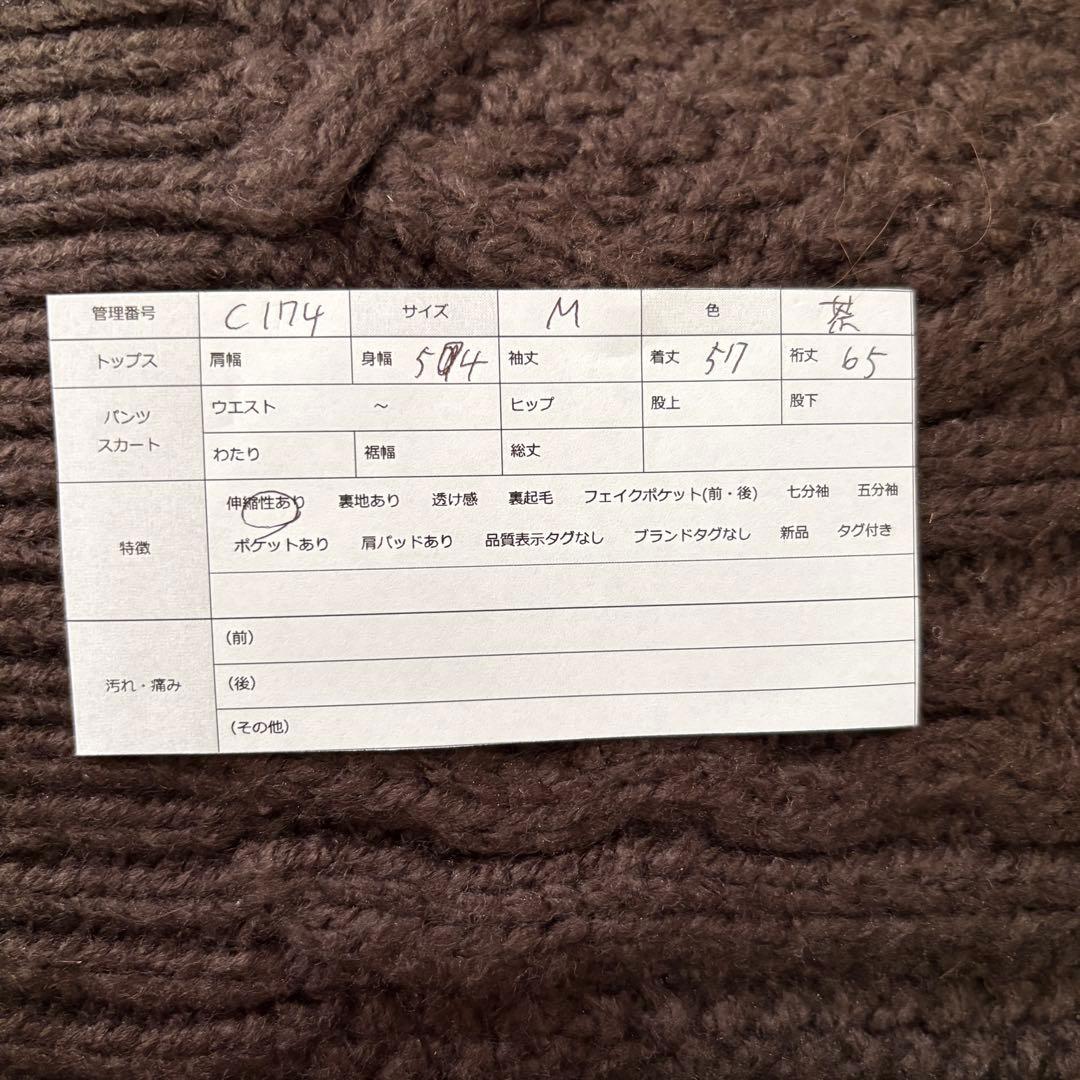 管理番号 C1174 サイズ M 色 茶
トップス 肩幅 身幅 54 袖丈 着丈 57 裄丈 65
パンツ スカート ウエスト ～ ヒップ 股上 股下
わたり 裾幅 総丈
特徴 伸縮性あり 裏地あり 透け感 裏起毛 フェイクポケット(前・後) 七分袖 五分袖
ポケットあり 肩パッドあり 品質表示タグなし ブランドタグなし 新品 タグ付き
汚れ・痛み (前)
(後)
(その他)